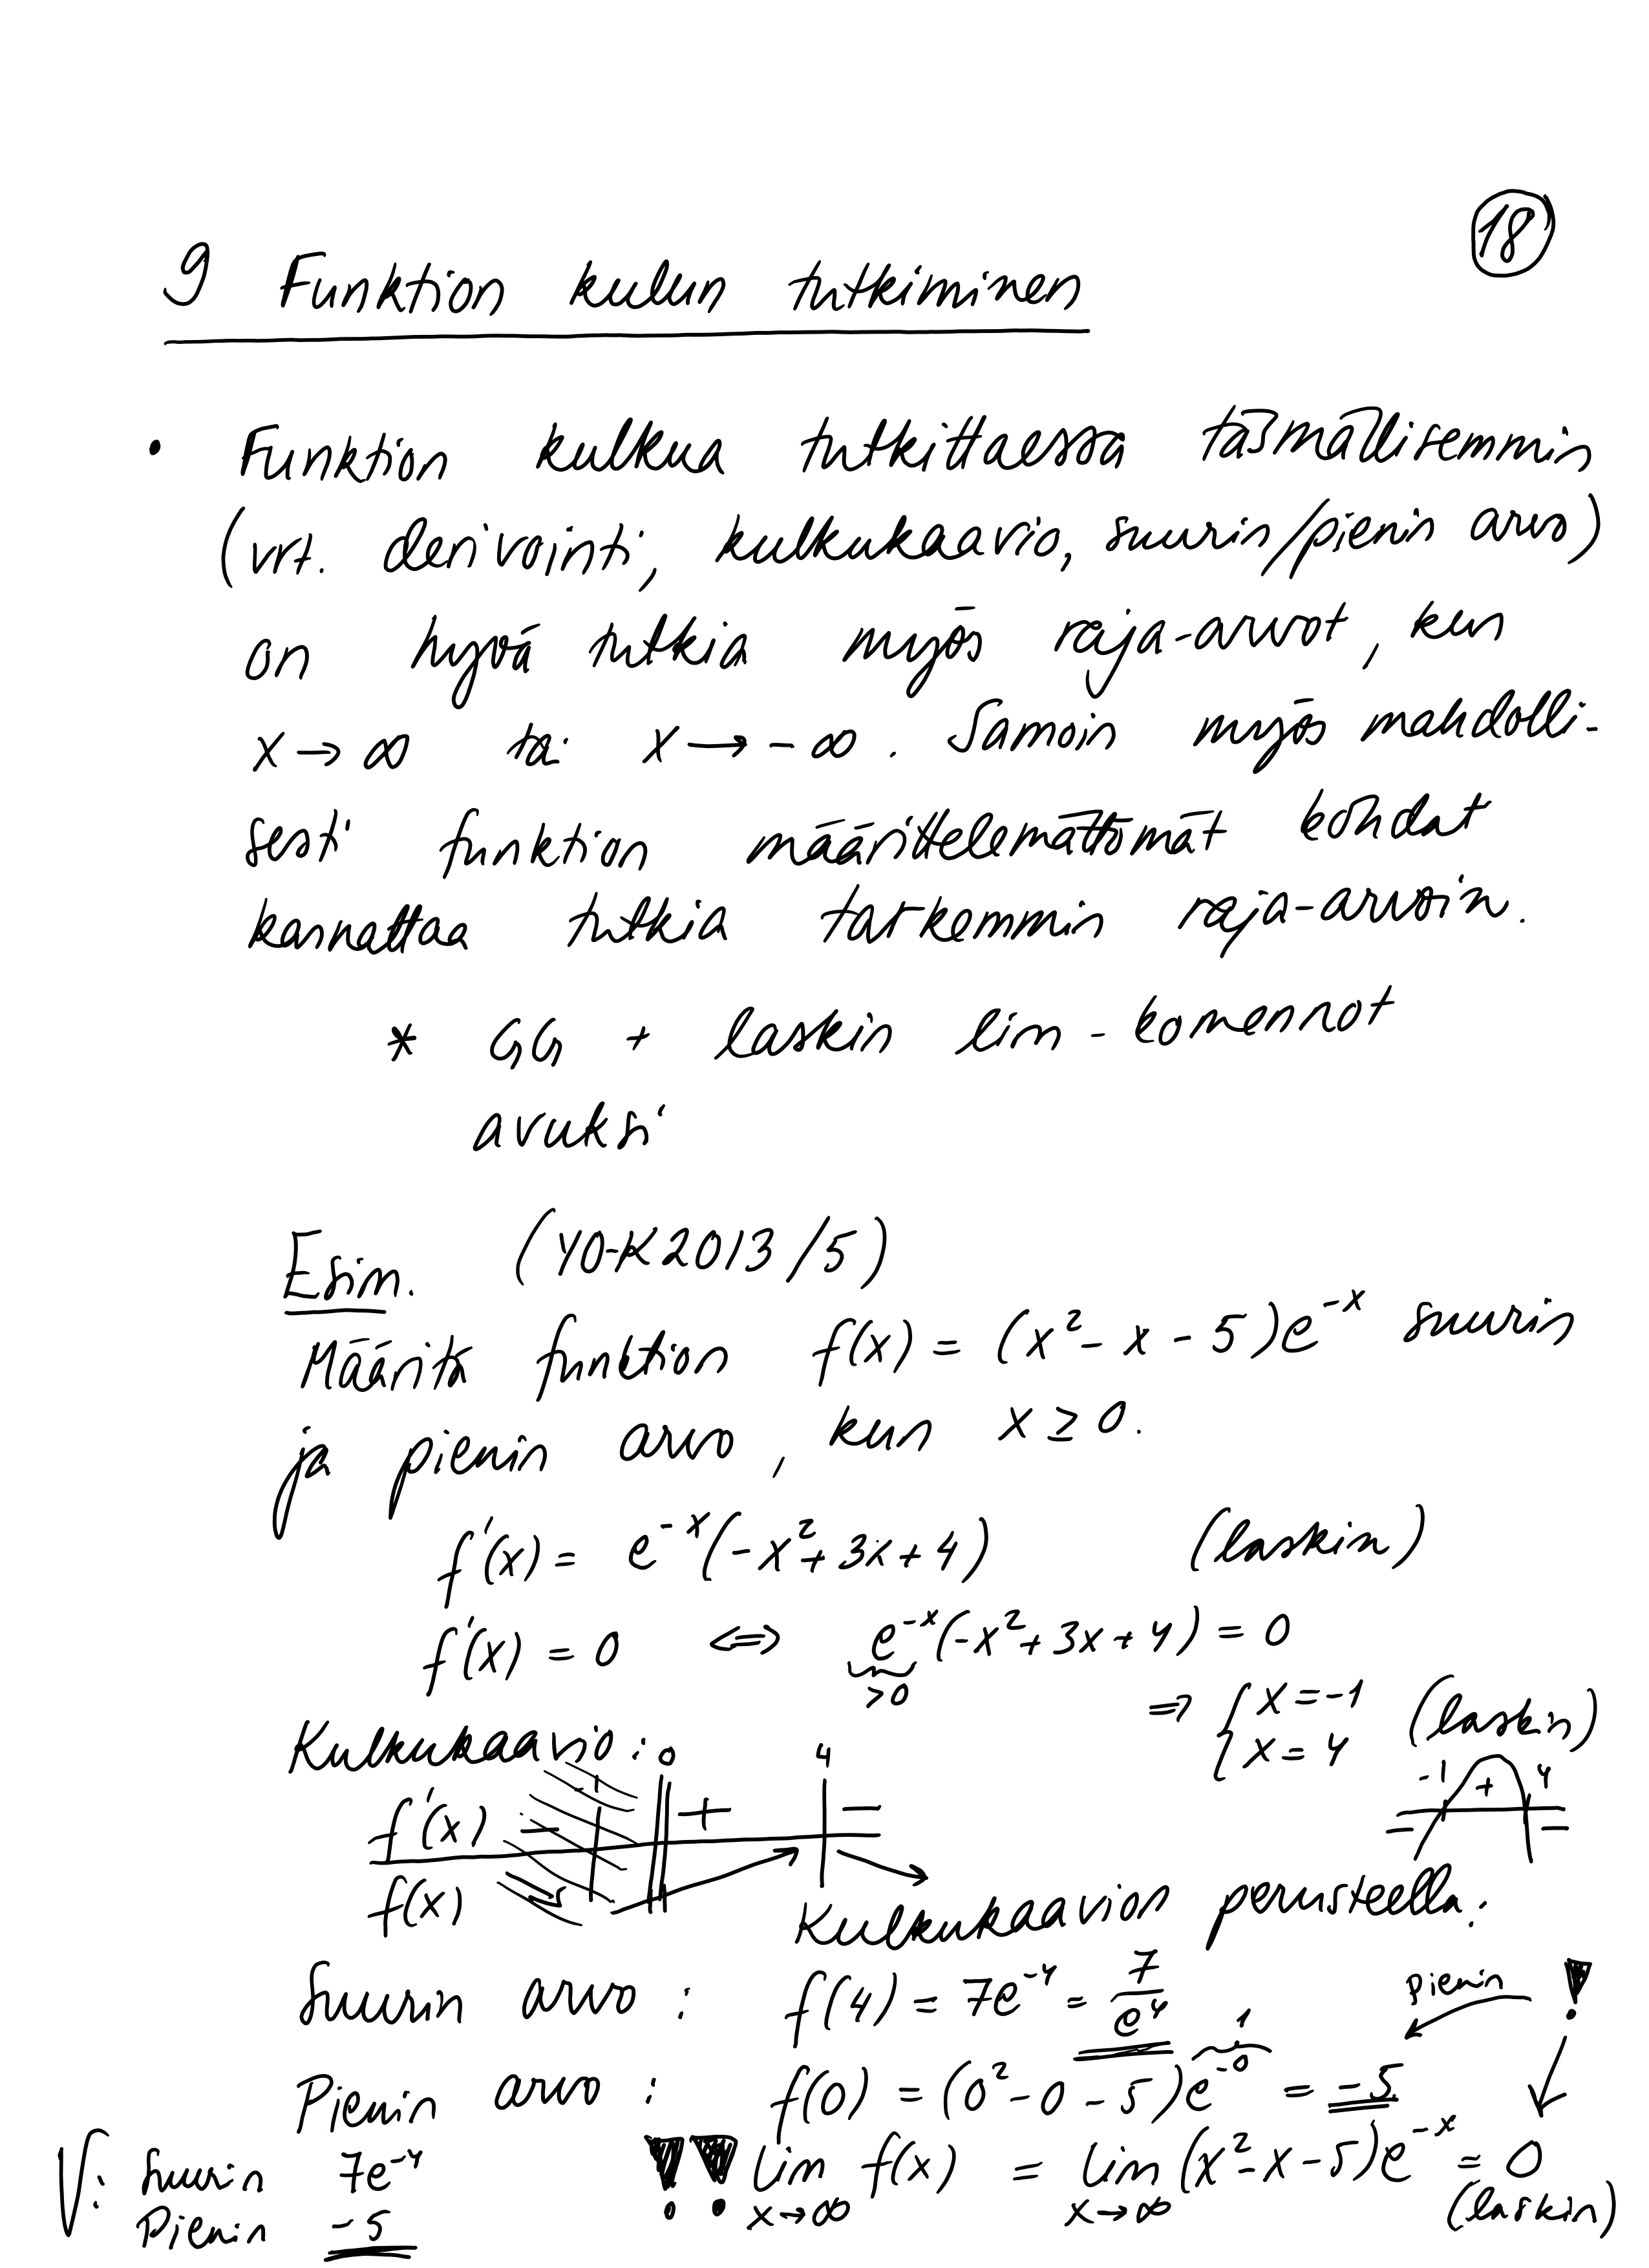 18
9 Funktion kulun tutkiminen
• Funktion kulkua tutkittaessa täsmällisemmin
(vrt. derivointi, kulkukaavio, suurin/pienin arvo)
on hyvä tutkia myös raja-arvot, kun
x → ∞ tai x → -∞. Samoin myös mahdolli-
sesti funktion määrittelemättömät kohdat
kannattaa tutkia tarkemmin raja-arvoin.
* GG + laskin lim-komennot
avuksi
Esim. (YO-K2013/5)
Määritä funktion f(x) = (x² - x - 5)e⁻ˣ suurin
ja pienin arvo, kun x ≥ 0.
f'(x) = e⁻ˣ(-x² + 3x + 4) (laskin)
f'(x) = 0 ⇔ e⁻ˣ(-x² + 3x + 4) = 0
>0
⇒ { x = -1
x = 4 (laskin)
Kulkukaavio:
-1 0 4
f'(x) - + -
f(x)
-1 + 4
- -
Kulkukaavion perusteella:
Suurin arvo: f(4) = 7e⁻⁴ = 7/e⁴
pienin !
1
Pienin arvo: f(0) = (0² - 0 - 5)e⁻⁰ = -5
!! lim x→∞ f(x) = lim x→∞ (x² - x - 5)e⁻ˣ = 0
(laskin)
V: Suurin 7e⁻⁴
Pienin -5